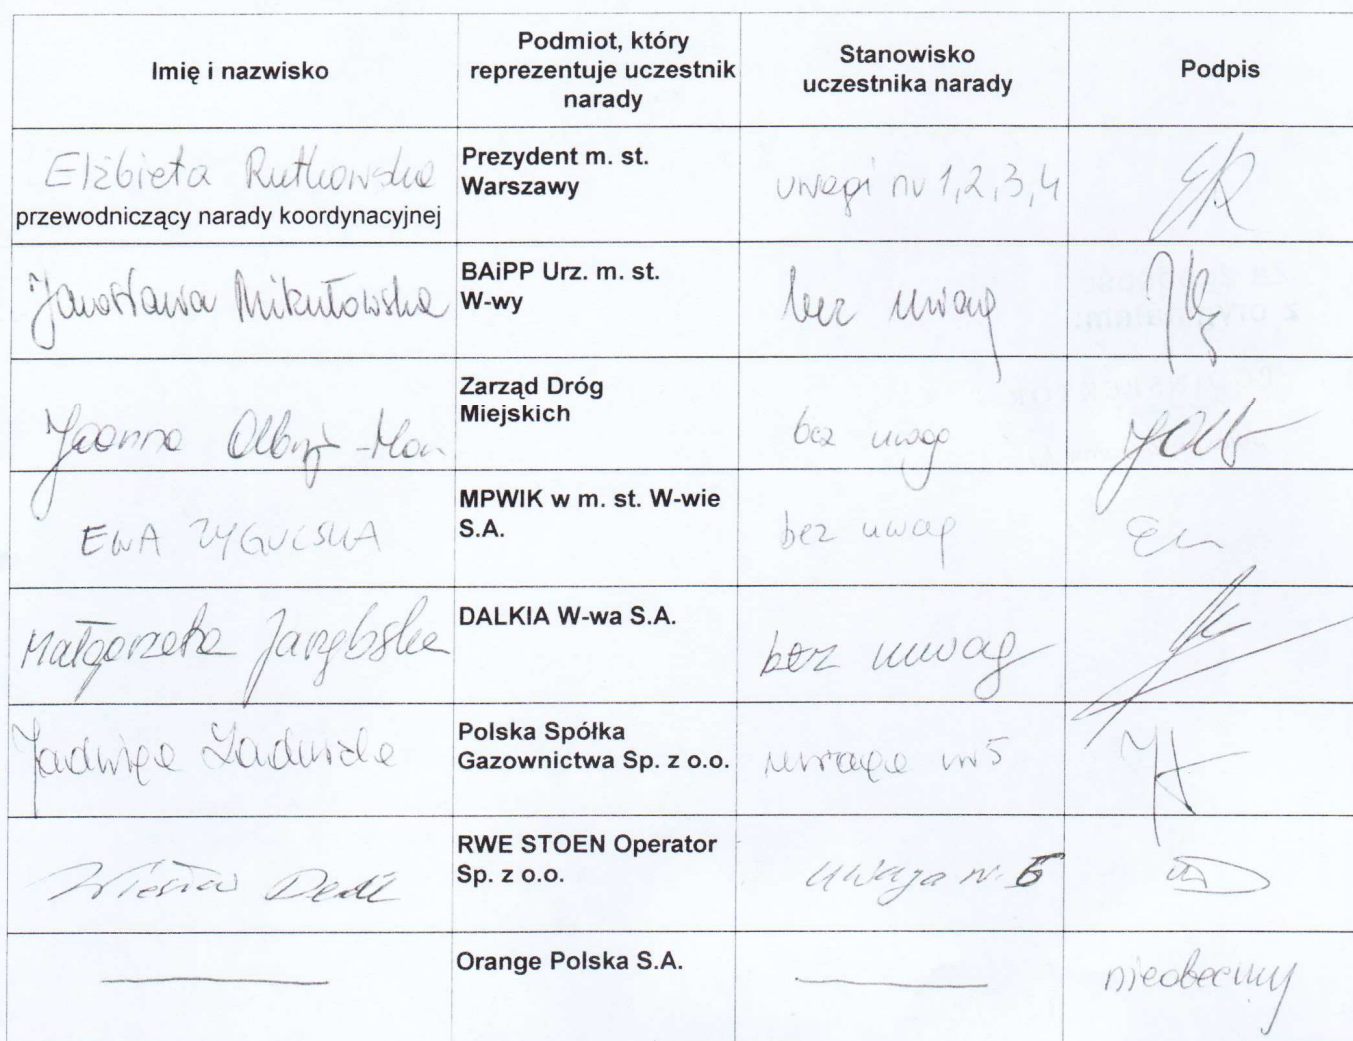 Imię i nazwisko
Podmiot, który
reprezentuje uczestnik
narady
Stanowisko
uczestnika narady
Podpis
Elżbieta Rutkowska
przewodniczący narady koordynacyjnej
Prezydent m. st.
Warszawy
uwagi nr 1,2,3,4
Jarosława Mikułowska
BAiPP Urz. m. st.
W-wy
bez uwag
Joanna
Zarząd Dróg
Miejskich
bez uwag
EWA
MPWIK w m. st. W-wie
S.A.
bez uwag
Małgorzata Jarzębska
DALKIA W-wa S.A.
bez uwag
Jadwiga
Polska Spółka
Gazownictwa Sp. z o.o.
uwaga nr 5
Wiesław
RWE STOEN Operator
Sp. z o.o.
uwaga nr 6
Orange Polska S.A.
nieobecny